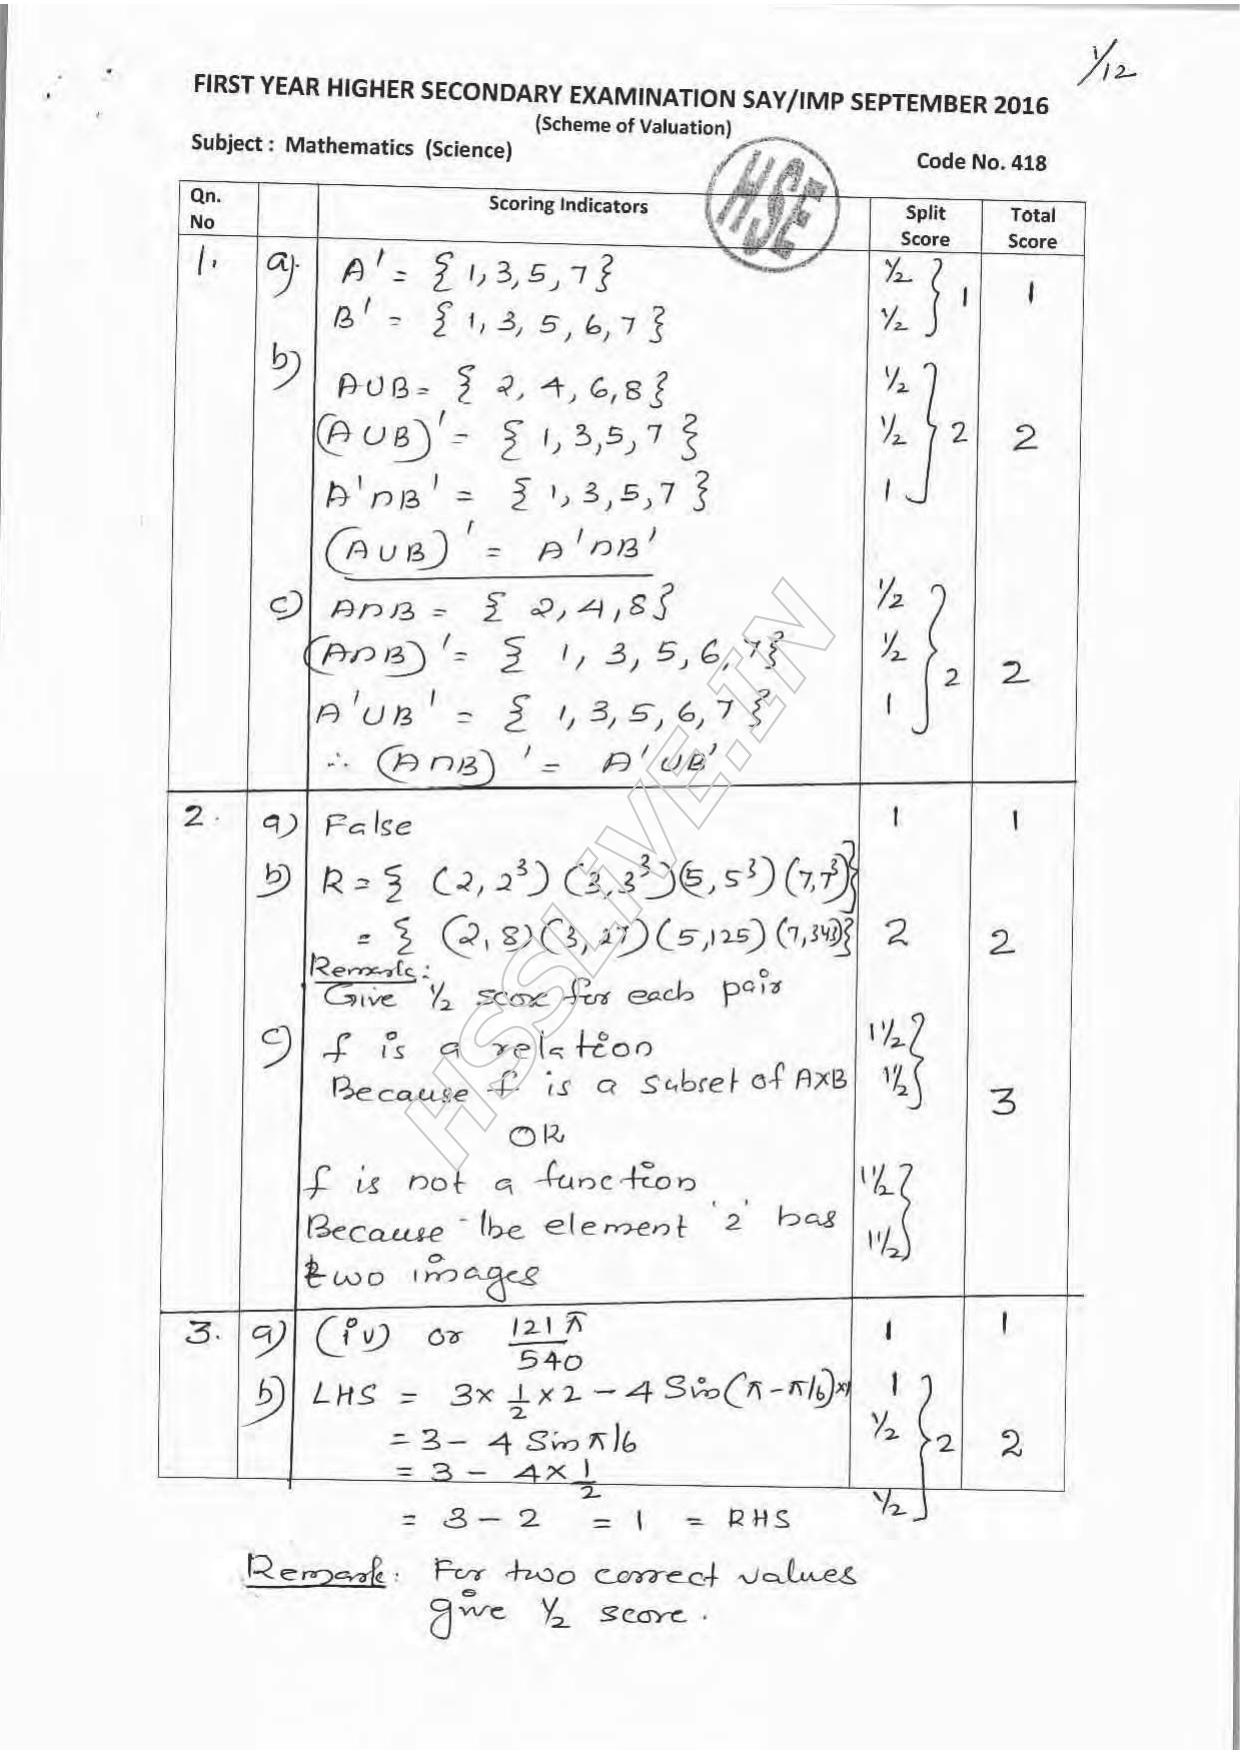 1/12
FIRST YEAR HIGHER SECONDARY EXAMINATION SAY/IMP SEPTEMBER 2016
(Scheme of Valuation)
Subject : Mathematics (Science)
Code No. 418
HSE
Qn. No Scoring Indicators Split Score Total Score
1. a) A' = { 1, 3, 5, 7 } 1/2
B' = { 1, 3, 5, 6, 7 } 1/2 } 1 1
b) A∪B = { 2, 4, 6, 8 } 1/2
(A∪B)' = { 1, 3, 5, 7 } 1/2 } 2 2
A'∩B' = { 1, 3, 5, 7 } 1
(A∪B)' = A'∩B'
c) A∩B = { 2, 4, 8 } 1/2
(A∩B)' = { 1, 3, 5, 6, 7 } 1/2 } 2 2
A'∪B' = { 1, 3, 5, 6, 7 } 1
∴ (A∩B)' = A'∪B'
2. a) False 1 1
b) R = { (2, 2³) (3, 3³) (5, 5³) (7, 7³) }
= { (2, 8) (3, 27) (5, 125) (7, 343) } 2 2
Remarks :
Give 1/2 score for each pair
c) f is a relation 1 1/2
Because f is a subset of A×B 1 1/2 } 3
OR
f is not a function 1 1/2
Because the element '2' has 1 1/2
two images
3. a) (iv) or 121π/540 1 1
b) LHS = 3 × 1/2 × 2 − 4 Sin(π − π/6) ×1 1
= 3 − 4 Sin π/6 1/2 } 2 2
= 3 − 4 × 1/2
= 3 − 2 = 1 = RHS 1/2
Remark : For two correct values
give 1/2 score.
HSSLiVE.IN